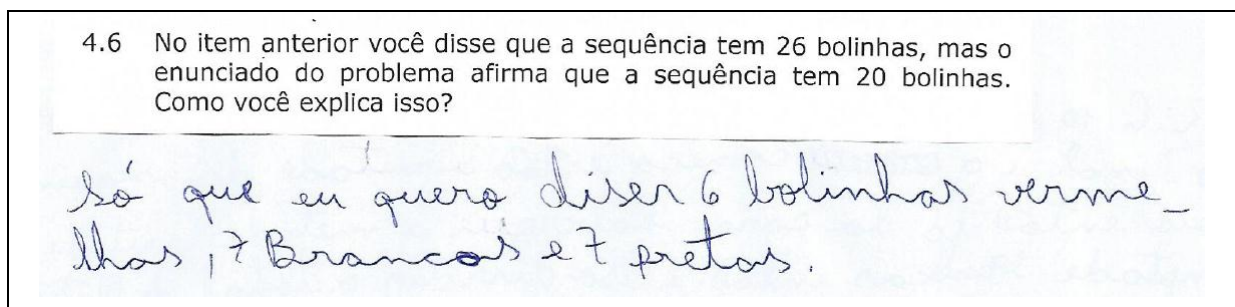 4.6 No item anterior você disse que a sequência tem 26 bolinhas, mas o
enunciado do problema afirma que a sequência tem 20 bolinhas.
Como você explica isso?
Só que eu quero diser 6 bolinhas verme_
lhas, 7 Brancas e 7 pretas.